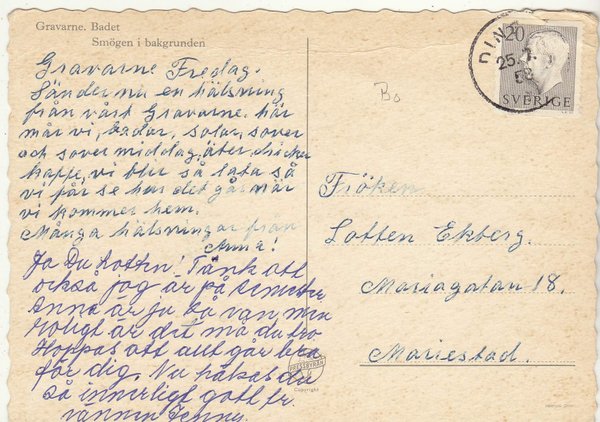 Gravarne. Badet
Smögen i bakgrunden
Gravarne Fredag.
Sänder nu en hälsning
från vårt Gravarne. här
mår vi, badar, solar, sover
och sover middag, äter, dricker
kaffe, vi blir så lata så
vi får se hur det går när
vi kommer hem.
Många hälsningar från
Anna!
Ja Du Lotten! Tänk att
också jag är på semester
Anna är ju så van men
roligt är det må du tro
Hoppas att allt går bra
för dig. Nu hälsas du
så innerligt gott fr.
vännen Jenny.
PRESSBYRÅN
Copyright
Bo
DIN
25.7.
58
20
SVERIGE
Fröken
Lotten Ekberg.
Mariagatan 18.
Mariestad.